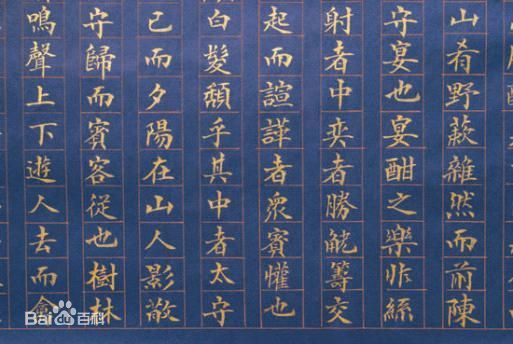 山肴野蔌雜然而前陳
守宴也宴酣之樂非絲
射者中奕者勝觥籌交
起而諠譁者眾賓懽也
白髮頹乎其中者太守
已而夕陽在山人影散
守歸而賓客從也樹林
鳴聲上下遊人去而禽
Bai百科